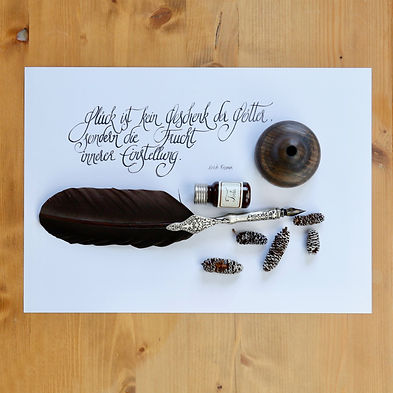 Glück ist kein Geschenk der Götter,
sondern die Frucht
innerer Einstellung.
Erich Fromm
Tinte